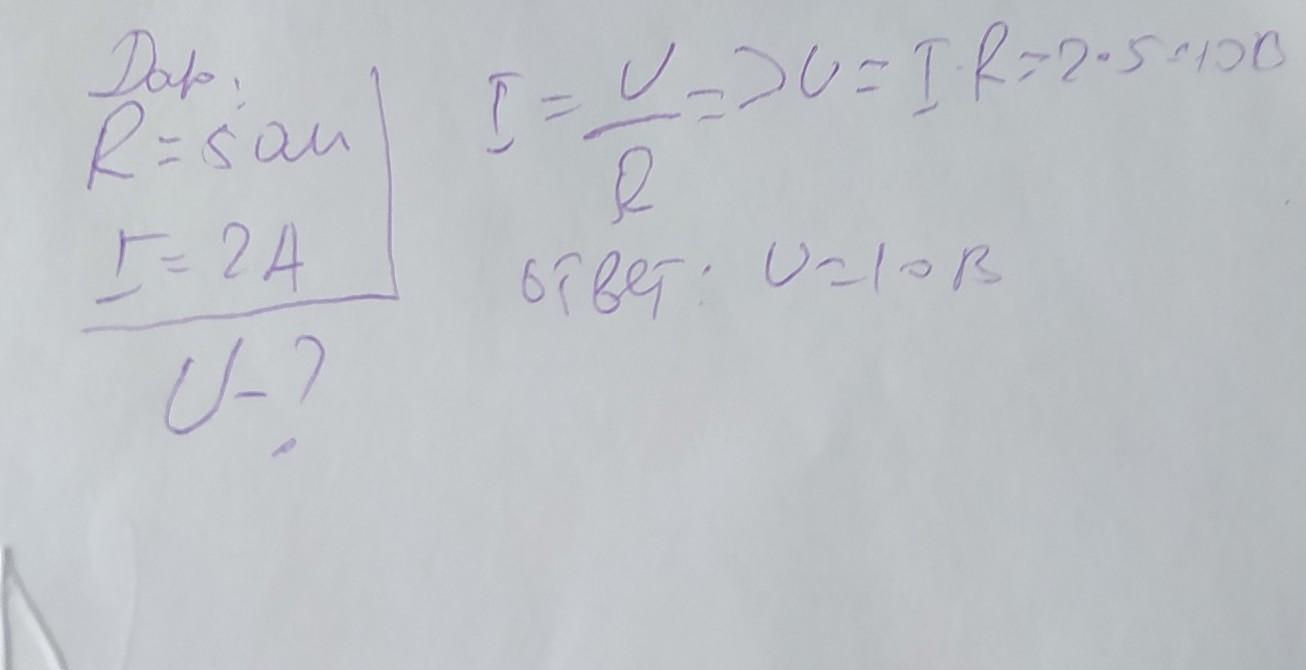 Дано:
R = 5 Ом
I = 2 A
U - ?
I = U/R => U = I · R = 2 · 5 = 10 В
Ответ: U = 10 В